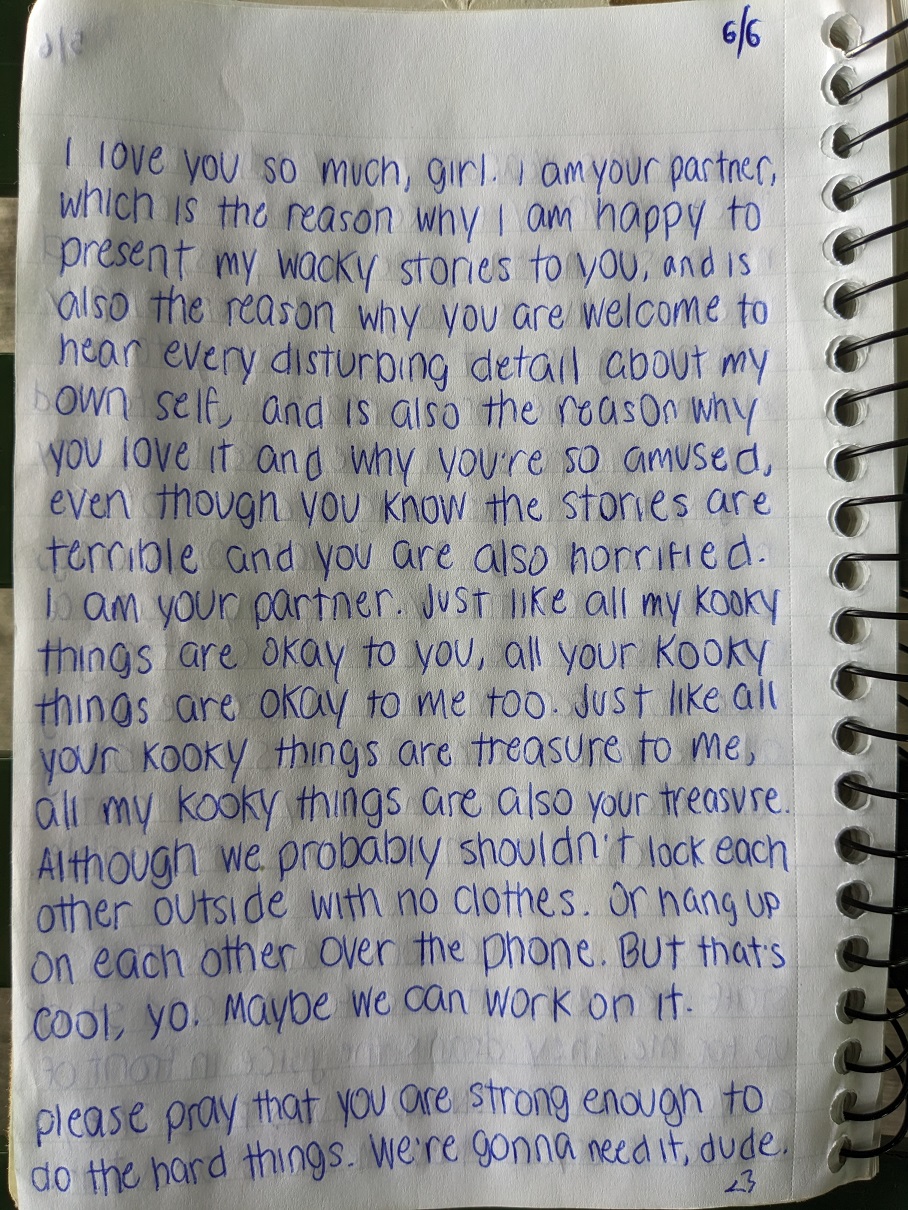 6/6
I love you so much, girl. I am your partner,
which is the reason why I am happy to
present my wacky stories to you, and is
also the reason why you are welcome to
hear every disturbing detail about my
own self, and is also the reason why
you love it and why you're so amused,
even though you know the stories are
terrible and you are also horrified.
I am your partner. Just like all my kooky
things are okay to you, all your kooky
things are okay to me too. Just like all
your kooky things are treasure to me,
all my kooky things are also your treasure.
Although we probably shouldn't lock each
other outside with no clothes. Or hang up
on each other over the phone. But that's
cool, yo. Maybe we can work on it.
please pray that you are strong enough to
do the hard things. We're gonna need it, dude.
23